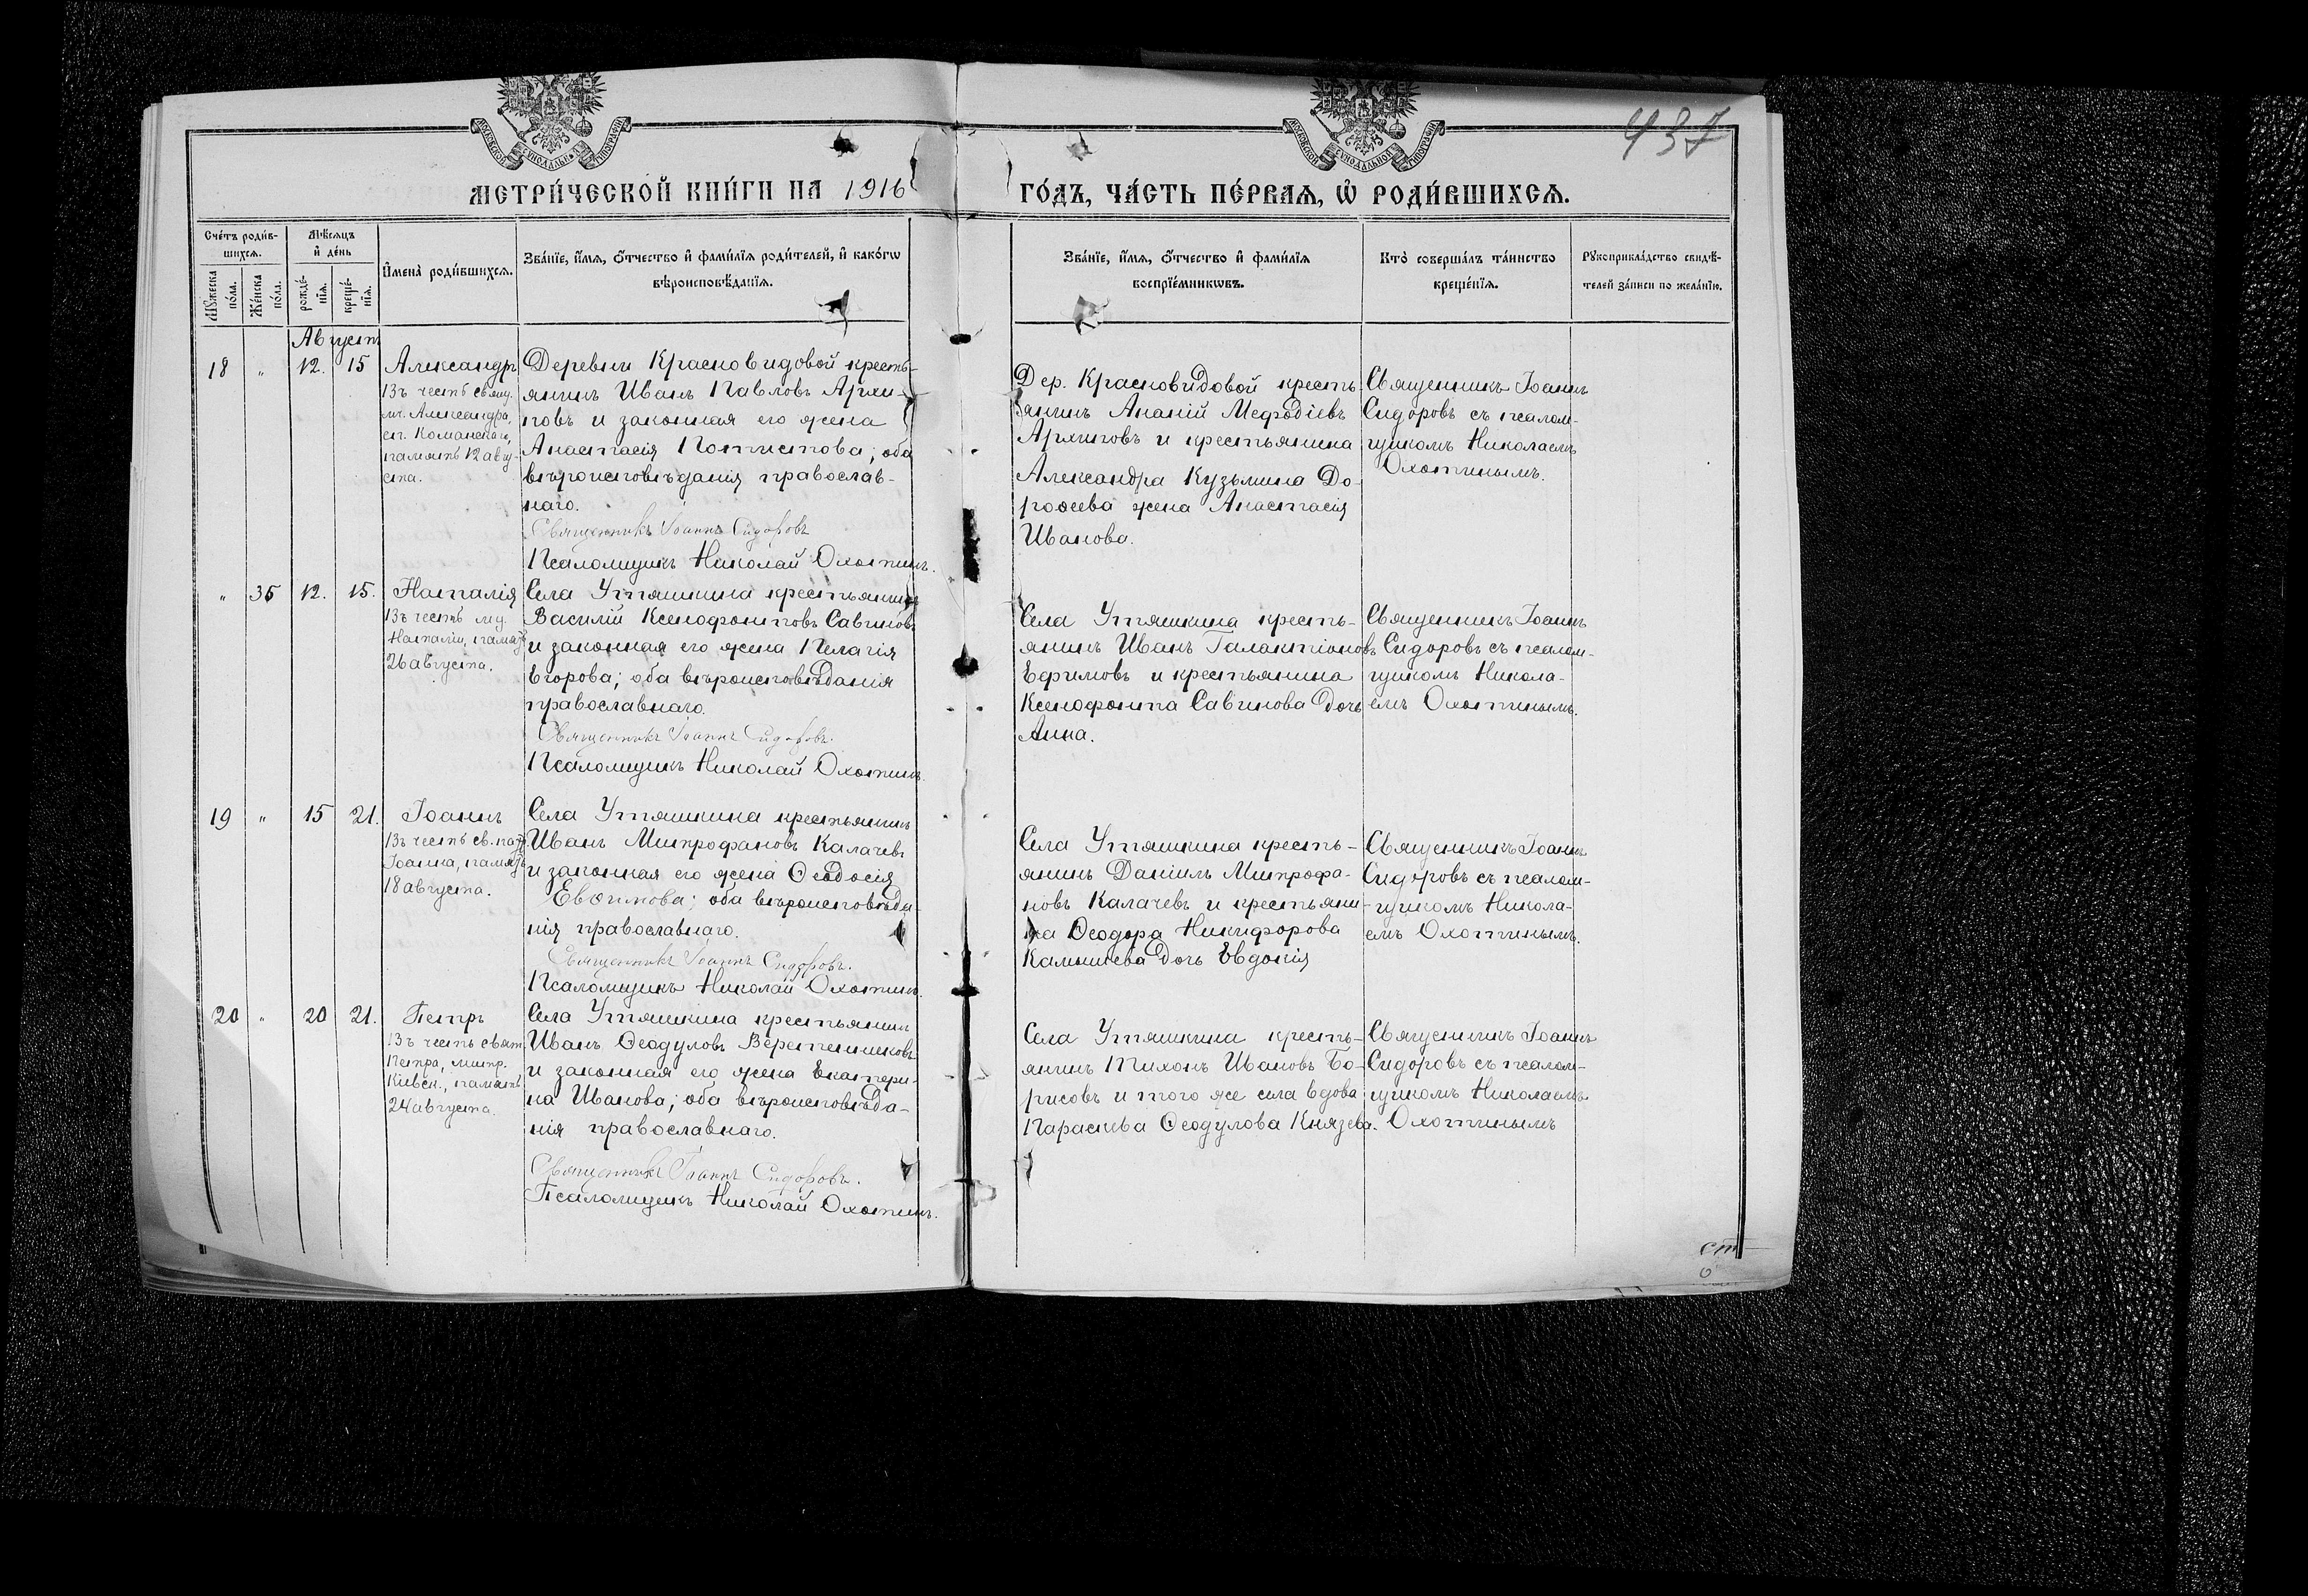 437
МОСКОВСКОЙ СѴНОДАЛЬНОЙ ТИПОГРАФІИ
МОСКОВСКОЙ СѴНОДАЛЬНОЙ ТИПОГРАФІИ
МЕТРИ́ЧЕСКОЙ КНИ́ГИ НА 1916
ГО́ДЪ, ЧА́СТЬ ПЕ́РВАЯ, Ѡ РОДИ́ВШИХСЯ.
Сче́тъ роди́в-
шихся.
Мѣ́сяцъ
и де́нь
Мꙋ́жеска по́ла.
Же́нска по́ла.
рожде́-
нїя.
креще́-
нїя.
И҆мена̀ роди́вшихся.
Зва́нїе, и҆́мя, ѻ҆́тчество и҆ фами́лїя роди́телей, и҆ како́гѡ
вѣроисповѣ́данїя.
Зва́нїе, и҆́мя, ѻ҆́тчество и҆ фами́лїя
воспрїе́мникѡвъ.
Кто̀ соверша́лъ та́инство
креще́нїя.
Рꙋкоприкла́дство свидѣ́-
телей за́писи по жела́нїю.
Августъ
18 " 12. 15 Александръ
Въ честь свящ.
мч. Александра,
еп. Команскаго,
память 12 авгу-
ста.
Деревни Красновидовой кресть-
янинъ Иванъ Павловъ Архи-
повъ и законная его жена
Анастасія Потистова; оба
вѣроисповѣданія православ-
наго.
Священникъ Іоаннъ Сидоровъ
Псаломщикъ Николай Охотинъ.
Дер. Красновидовой кресть-
янинъ Ананій Мефодіевъ
Архиповъ и крестьянина
Александра Кузьмина До-
роѳеева жена Анастасія
Иванова.
Священникъ Іоаннъ
Сидоровъ съ псалом-
щикомъ Николаемъ
Охотинымъ.
" 35 12. 15. Наталія
Въ честь му.
Наталіи, память
26 августа.
Села Утяшкина крестьянинъ
Василій Ксенофонтовъ Савиновъ
и законная его жена Пелагія
Егорова; оба вѣроисповѣданія
православнаго.
Священникъ Іоаннъ Сидоровъ.
Псаломщикъ Николай Охотинъ.
Села Утяшкина кресть-
янинъ Иванъ Галактіоновъ
Ефимовъ и крестьянина
Ксенофонта Савинова дочь
Анна.
Священникъ Іоаннъ
Сидоровъ съ псалом-
щикомъ Никола-
емъ Охотинымъ.
19 " 15 21. Іоаннъ
Въ честь св. патр.
Іоанна, память
18 августа.
Села Утяшкина крестьянинъ
Иванъ Митрофановъ Калачевъ
и законная его жена Ѳеодосія
Евѳимова; оба вѣроисповѣда-
нія православнаго.
Священникъ Іоаннъ Сидоровъ.
Псаломщикъ Николай Охотинъ.
Села Утяшкина кресть-
янинъ Даніилъ Митрофа-
новъ Калачевъ и крестьяни-
на Ѳеодора Никифорова
Камышева дочь Евдокія
Священникъ Іоаннъ
Сидоровъ съ псалом-
щикомъ Никола-
емъ Охотинымъ.
20 " 20 21. Петръ
Въ честь свят.
Петра, митр.
Кіевск., память
24 августа.
Села Утяшкина крестьянинъ
Иванъ Ѳеодуловъ Веретенниковъ
и законная его жена Екатери-
на Иванова; оба вѣроисповѣда-
нія православнаго.
Священникъ Іоаннъ Сидоровъ.
Псаломщикъ Николай Охотинъ.
Села Утяшкина кресть-
янинъ Тихонъ Ивановъ Бо-
рисовъ и того же села вдова
Параскева Ѳеодулова Князева.
Священникъ Іоаннъ
Сидоровъ съ псалом-
щикомъ Николаемъ
Охотинымъ